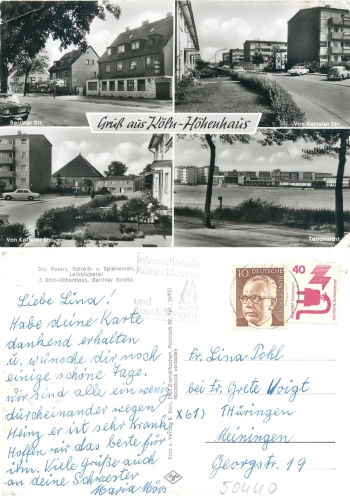 Berliner Str.
Von Ketteler Str.
Gruß aus Köln-Höhenhaus
Von Ketteler Str.
Jos. Peters, Schreib- u. Spielwaren,
Leihbücherei
5 Köln-Höhenhaus, Berliner Straße
Internationale
Kölner Messen
und
Ausstellungen
10 DEUTSCHE BUNDESPOST
40
Liebe Lina!
Habe deine Karte
dankend erhalten
u. wünsche dir noch
einige schöne Tage.
wir sind alle ein wenig
durcheinander wegen
Heinz er ist sehr krank
Hoffen wir das beste für
ihn. Viele Grüße auch
an deine Schwester
Maria
Nachdruck verboten
Agfa
Fr. Lina Pohl
bei Fr. Grete Voigt
X61) THÜRINGEN
Meiningen
Georgstr. 19
50440